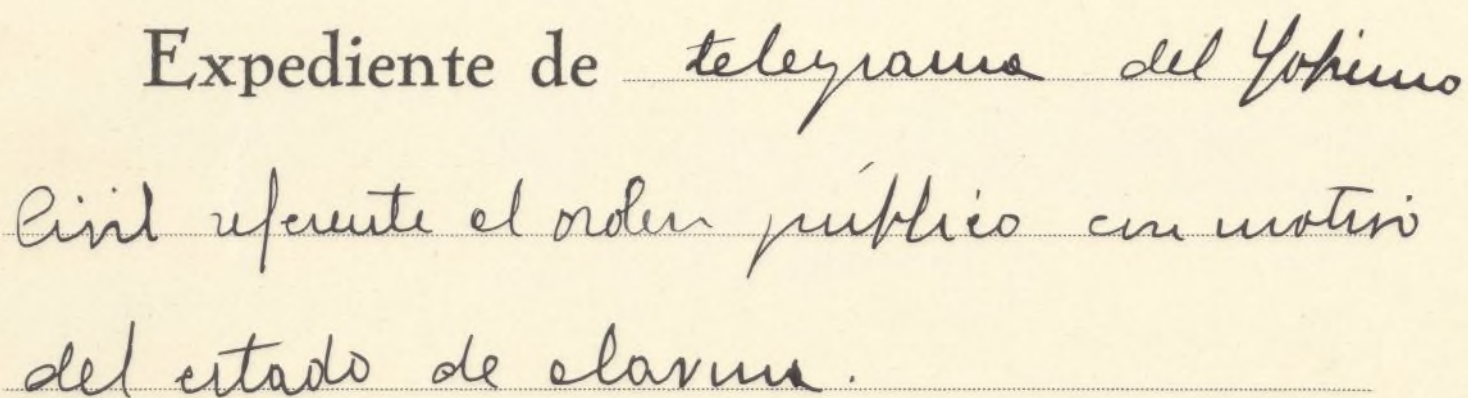 Expediente de telegrama del Gobierno
Civil referente al orden público con motivo
del estado de alarma.